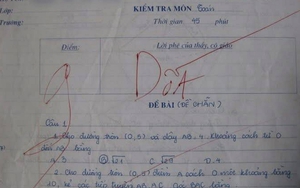 Lớp:
Trường:
KIỂM TRA MÔN Toán
Thời gian 45 phút
Điểm:
Lời phê của thầy, cô giáo
9
Dốt
ĐỀ BÀI (ĐỀ CHẴN)
Câu 1
1. Cho đường tròn (0,5) và dây AB = 4. Khoảng cách từ 0
bằng
A. 3 B. √21 C. √29 D. 4
2. Cho đường tròn (0,5) điểm A cách 0 một khoảng bằng
10, kẻ các tiếp tuyến AB, AC. Góc BAC bằng